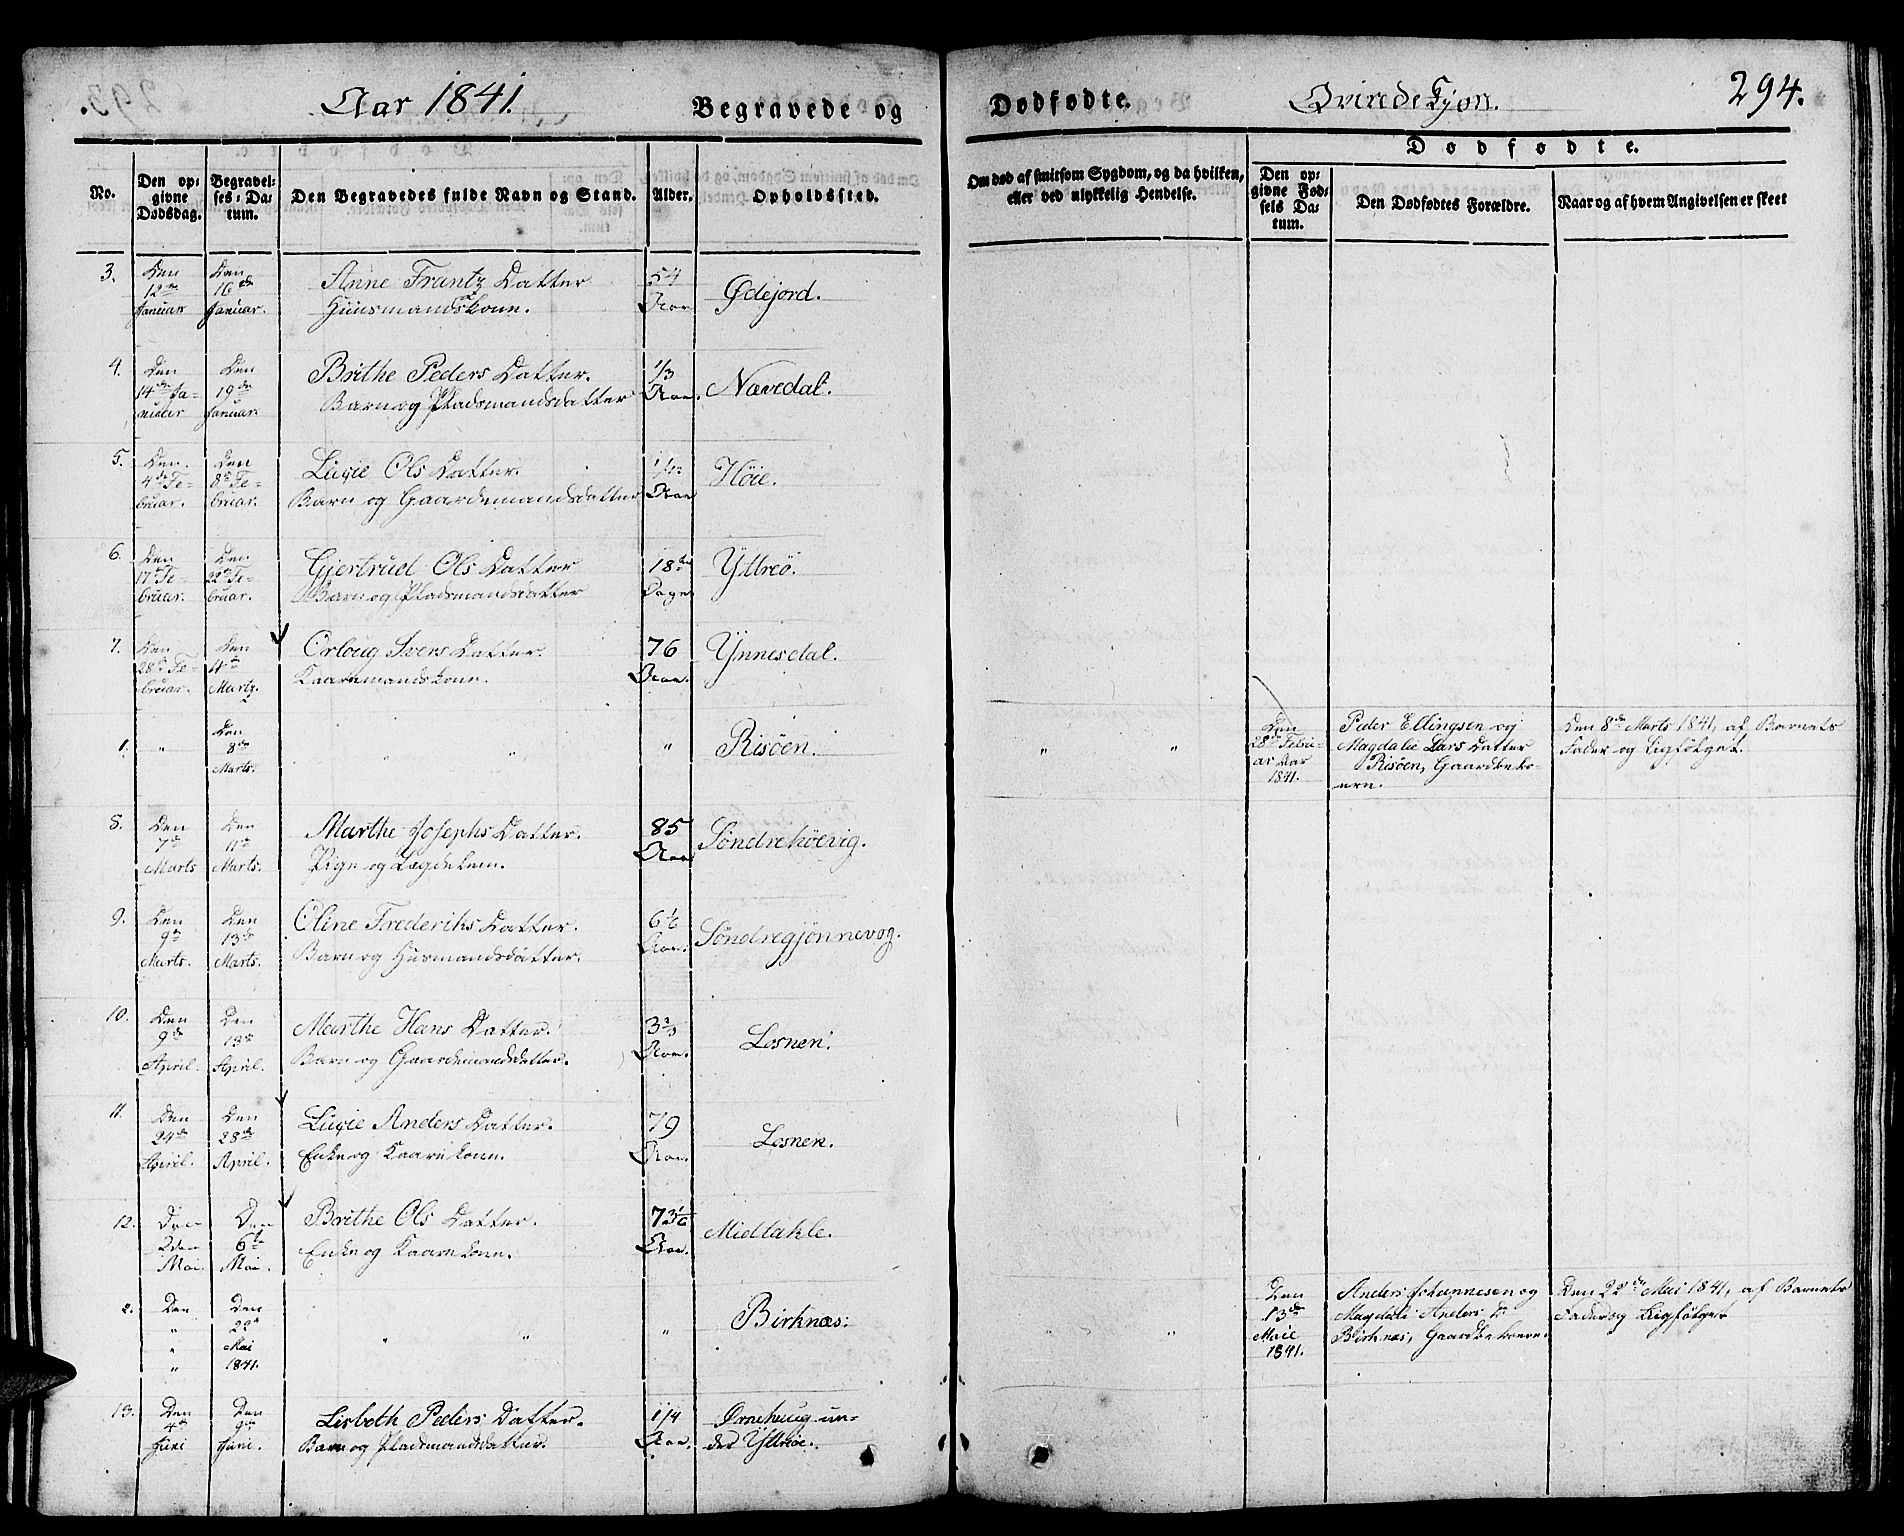 Aar 1841.
Begravede og
Dødfødte.
Qvinde Kjøn.
294.
No.
Den op-
givne
Dødsdag.
Begravel-
ses-Da-
tum.
Den Begravedes fulde Navn og Stand.
Alder.
Opholdssted.
Om død af smitsom Sygdom, og da hvilken,
eller ved ulykkelig Hendelse.
Dødfødte.
Den op-
givne Fød-
sels Da-
tum.
Den Dødfødtes Forældre.
Naar og af hvem Angivelsen er skeet
3.
Den
12te
Januar
Den
16de
Januar.
Anne Frantz Datter
Huusmandskone.
54
Aar
Ødejord.
4.
Den
14de Ja-
nuar
Den
19de
Januar
Brithe Peders Datter.
Barn og Pladsmandsdatter
1/3
Aar.
Nævedal.
5.
Den
4de Fe-
bruar.
Den
8de Fe-
bruar.
Lucie Ols Datter.
Barn og Gaardemandsdatter
Aar
Høie.
6.
Den
17de Fe-
bruar.
Den
22de Fe-
bruar.
Gjertrud Ols Datter
Barn og Pladsmandsdatter
18
Dage
Yttreö.
7.
Den
28de Fe-
bruar.
Den
4de
Marts.
Orloug Ivers Datter.
Kaaremandskone.
76
Aar.
Ynnesdal.
1.
"
Den
8de
Marts.
"
"
Risöen.
"
"
Den
28de Febru-
ar Aar
1841.
Peder Ellingsen og
Magdalie Lars Datter
Risöen, Gaardbeko-
ern.
Den 8de Marts 1841, af Barnets
Fader og Ligfølget.
8.
Den
7de
Marts
Den
11te
Marts.
Marthe Josephs Datter.
Pige og Lægdelem.
85
Aar
Söndrehöevig.
9.
Den
9de
Marts.
Den
13de
Marts.
Oline Frederiks Datter.
Barn og Husmandsdatter.
6 1/6
Aar.
Söndregjönnevog.
10.
Den
9de
April.
Den
18de
April.
Marthe Hans Datter.
Barn og Gaardemandsdatter.
3 2/3
Aar.
Losnen.
11.
Den
24de
April.
Den
28de
April.
Lucie Anders Datter.
Enke og Kaarekone.
79
Aar.
Losnen.
12.
Den
2den
Mai.
Den
6te
Mai.
Brithe Ols Datter.
Enke og Kaarekone.
73 1/6
Aar.
Midtakle.
2.
Den
"
"
Den
22de
Mai
1841.
"
"
"
Birknæs.
"
"
Den
13de
Maie
1841.
Anders Johannesen og
Magdeli Anders D:
Birknæs, Gaardbekoern.
Den 22de Mai 1841, af Barnets
Fader og Ligfølget
13.
Den
4de
Juni
Den
9de
Juni.
Lisbeth Peders Datter.
Barn og Pladsmandsdatter.
1/4
Aar.
Ørnehaug un-
der Yttröe.